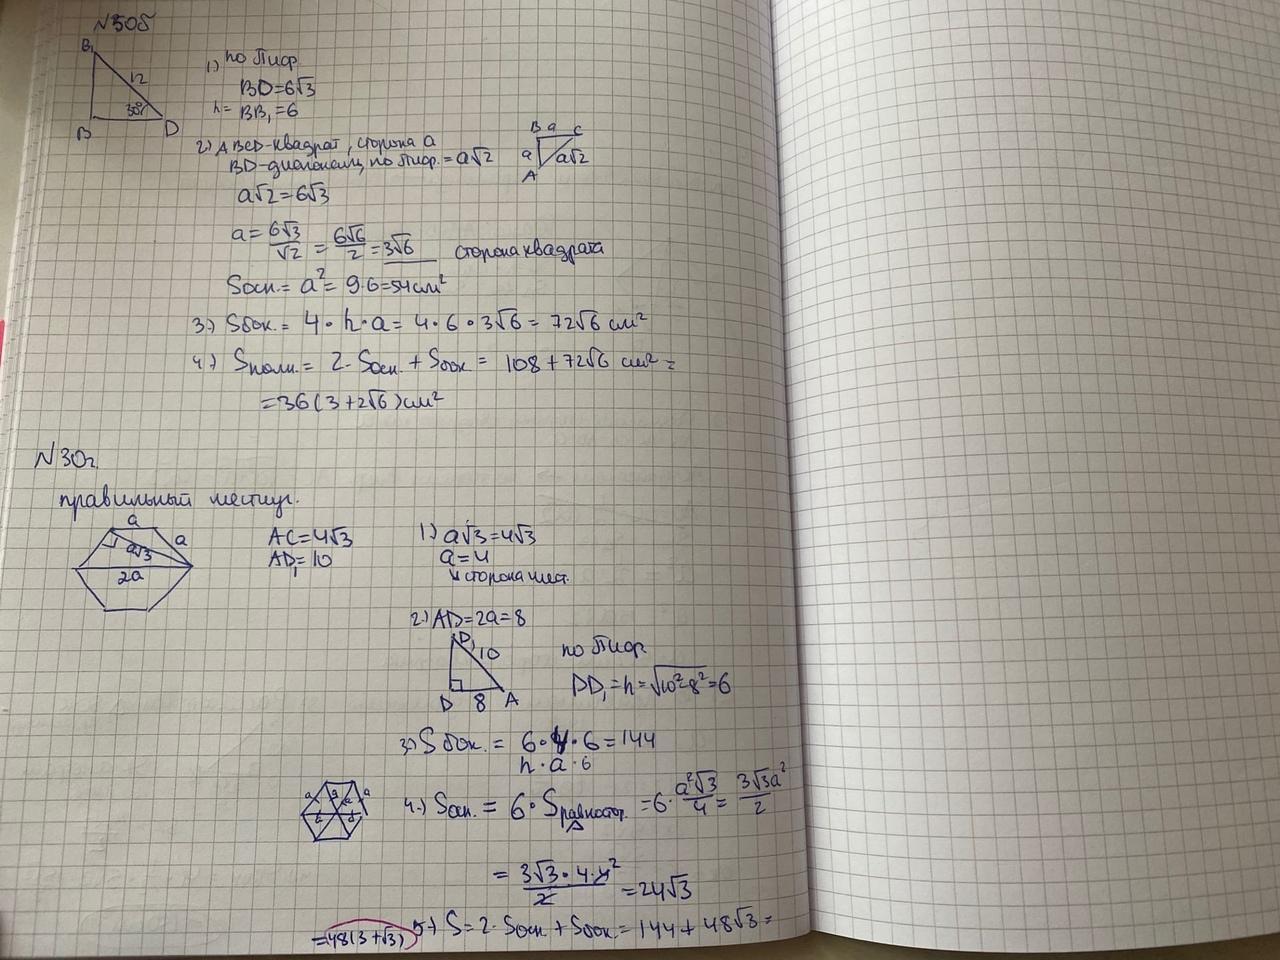 №30б
B₁
12
30°
B
D
1) по Пиф.
BD=6√3
h= BB₁=6
2) ABCD-квадрат, сторона a
BD-диагональ, по Пиф. = a√2
B a C
a a√2
A
a√2=6√3
a= 6√3/√2 = 6√6/2 =3√6 сторона квадрата
Sосн.= a²= 9·6=54см²
3.) Sбок.= 4·h·a= 4·6·3√6= 72√6 см²
4.) Sполн.= 2·Sосн. + Sбок = 108+72√6 см² =
=36(3+2√6)см²
№30г.
правильный шестиуг.
a
a
a√3
2a
AC=4√3
AD₁=10
1.) a√3=4√3
a=4
сторона шест.
2.) AD=2a=8
D₁
10
D 8 A
по Пиф.
DD₁=h=√10²-8²=6
3) Sбок. = 6·4·6=144
h·a·6
4.) Sосн. = 6·Sравностор. =6· a²√3/4 = 3√3a²/2
Δ
= 3√3·4·4²/2 =24√3
5.) S=2·Sосн + Sбок.=144+48√3=
=48(3+√3)